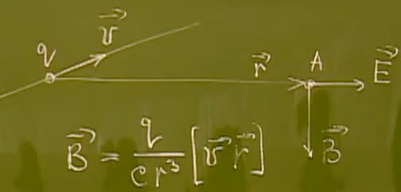 q v⃗ r⃗ A E⃗
B⃗ = q/cr³ [v⃗ r⃗] B⃗